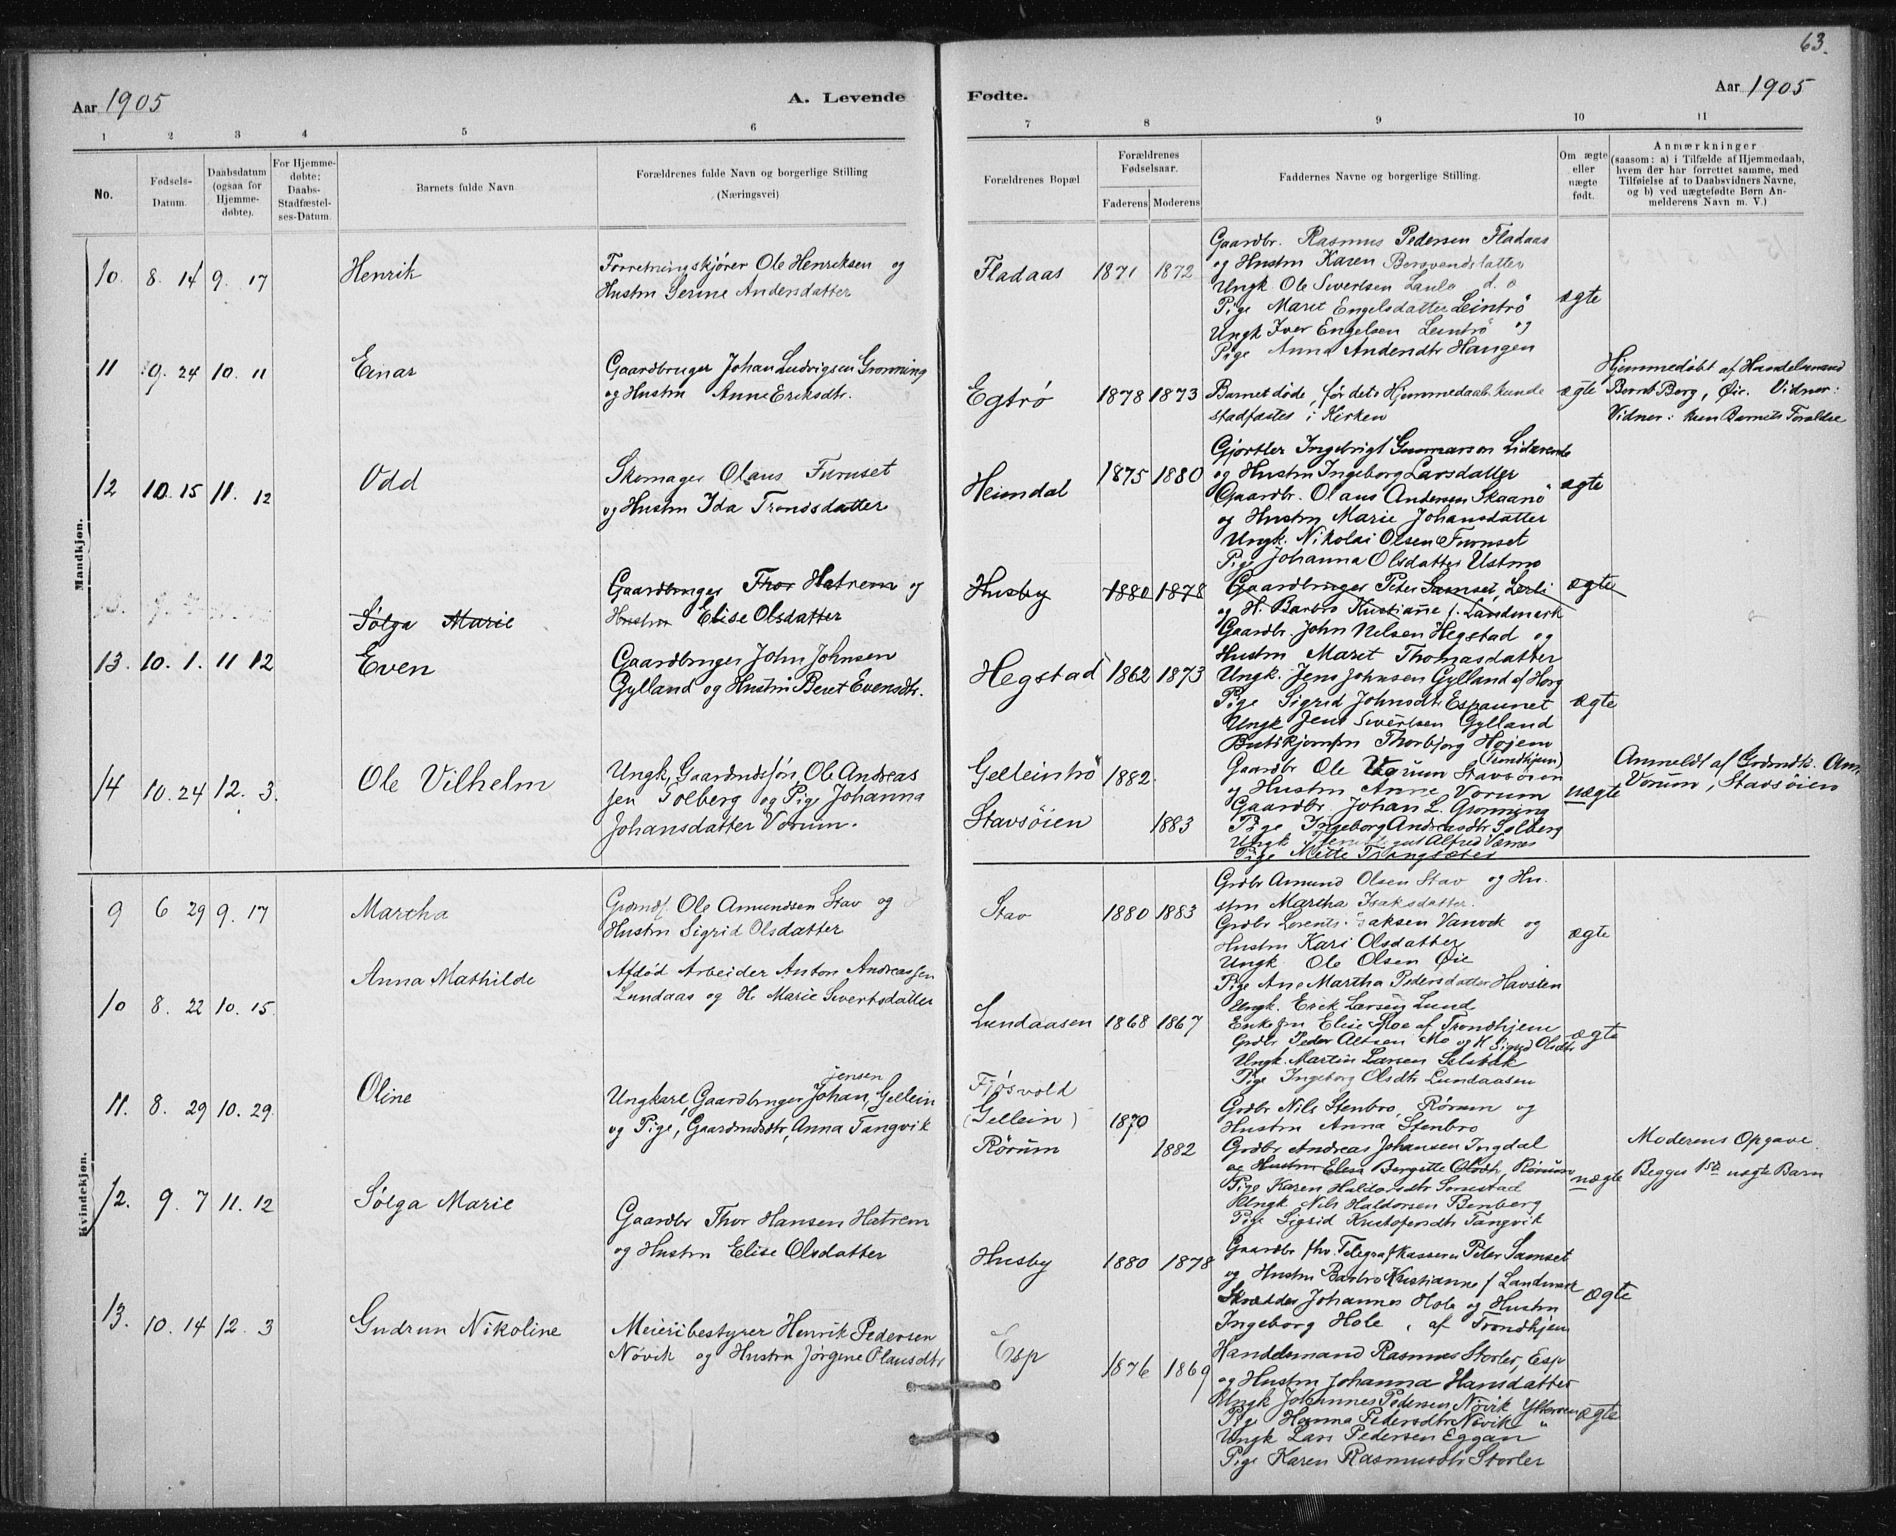 63.
Aar 1905
A. Levende
Fødte.
Aar 1905
1 2 3 4 5 6
7 8 9 10 11
No.
Fødsels-
Datum.
Daabsdatum
(ogsaa for
Hjemme-
døbte).
For Hjemme-
døbte:
Daabs-
Stadfæstel-
ses-Datum.
Barnets fulde Navn
Forældrenes fulde Navn og borgerlige Stilling
(Næringsvei)
Forældrenes Bopæl
Forældrenes
Fødselsaar.
Faderens Moderens
Faddernes Navne og borgerlige Stilling.
Om ægte
eller
uægte
født.
Anmærkninger
(saasom: a) i Tilfælde af Hjemmedaab,
hvem der har forrettet samme, med
Tilføielse af to Daabsvidners Navne,
og b) ved uægtefødte Børn An-
melderens Navn m. V.)
Mandkjøn.
10. 8. 14 9. 17
Henrik
Forretningskjører Ole Henriksen og
Hustru Serine Andersdatter
Fladaas 1871 1872
Gaardbr. Rasmus Pedersen Fladaas
og Hustru Karen
Ungk. Ole Sivertsen
Pige Marit Engelsdatter Leintrø
Ungk Iver Engelsen Leintrø og
Pige Anna Andersdtr Haugen
ægte
11 9. 24 10. 11
Einar
Gaardbruger Johan Ludvigsen Grønning
og Hustru Anne Eriksdtr.
Egtrø 1878 1873
Barnet døde, før dets Hjemmedaab kunde
stadfæstes i Kirken
ægte
Hjemmedøbt af Handelsmand
Bernt Borg, Øie. Vidner:
Vidner: kun Barnets Forældre
12 10. 15 11. 12
Odd
Skomager Olaus Furuset
og Hustru Ida Trondsdatter
Heimdal 1875 1880
Gjørtler Ingebrigt Gunnarson
og Hustru Ingeborg Larsdatter
Gaardbr. Olaus Andersen Skaanø
og Hustru Marie Johansdatter
Ungk. Nikolai Olsen Furuset
Pige Johanna Olsdatter Ustmo
ægte
Sølga Marie
Gaardbruger Thor Hatrem og
Hustru Elise Olsdatter
Husby 1880 1878
Gaardbruger Peter Samset, Lerli
og H. Barbro Kristianne f. Landmark
ægte
13. 10. 1. 11 12
Even
Gaardbruger John Johnsen
Gylland og Hustru Beret Evensdtr.
Hegstad 1862 1873
Gaardbr. John Nelsen Hegstad og
Hustru Maret Thomasdatter
Ungk. Jens Johnsen Gylland af Horg
Pige Sigrid Johnsdtr Espaunet
Ungk Jens Sivertsen Gylland
Butikjomfru Thorbjørg Højem
(Trondhjem)
ægte
14 10. 24 12. 3.
Ole Vilhelm
Ungk, Gaardmdssøn, Ole Andreas
sen Solberg og Pige Johanna
Johansdatter Vorum.
Gelleintrø 1882.
Stavsøien 1883
Gaardbr Ole Vorum Stavsøien
og Hustru Anne Vorum
Gaardbr. Johan L. Grønning
Pige Ingeborg Andreasdtr Solberg
Ungk Alfred Værnes
Pige Mette Trangsæter
uægte
Anmeldt af Grdmdk. Ann
Vorum, Stavsøien
Kvindekjøn.
9 6 29 9. 17
Martha
Grdmdf. Ole Amundsen Stav og
Hustru Sigrid Olsdatter
Stav 1880 1883
Grdbr Amund Olsen Stav og Hu-
stru Martha Isaksdatter.
Grdbr Lorents Isaksen Vanvik og
Hustru Kari Olsdatter
Ungk Ole Olsen Øie
Pige Ane Martha Pedersdatter Havsten
ægte
10 8. 22 10. 15
Anna Mathilde
Afdød Arbeider Anton Andreassen
Lundaas og H. Marie Sivertsdatter
Lundaasen 1868 1867
Ungk. Erik Larsen Lund
Enkefru Elise Moe af Trondhjem
Grdbr Peder Altsen Mo og H. Sigrid Olsdtr
Ungk. Martin Larsen Selsbak
Pige Ingeborg Olsdtr Lundaasen
ægte
11. 8. 29 10. 29.
Oline
jensen
Ungkarl, Gaardbruger Johan, Gellein
og Pige, Gaardmdsdtr, Anna Tangvik
Fjøsvold
(Gellein) 1870
Rørum 1882
Grdbr Nils Stenbro, Rørum og
Hustru Anna Stenbro
Grdbr Andreas Johansen Ingdal
og Hustru Elisa Bergitte Olsdtr, Rørum
Pige Karen Haldorsdtr Sornstad
Ungk Nils Haldorsen Benberg
Pige Sigrid Kristofersdtr Tangvik
uægte
Moderens Opgave.
Begges 1ste uægte Barn
12. 9. 7 11. 12
Sølga Marie
Gaardbr Thor Hansen Hatrem
og Hustru Elise Olsdatter
Husby 1880 1878
Gaardbr fhv. Telegrafkasserer Peter Samset
og Hustru Barbro Kristianne f Landmark
Skrædder Johannes Hole og Hustru
Ingeborg Hole, af Trondhjem
ægte
13. 10. 14 12. 3
Gudrun Nikoline
Meieribestyrer Henrik Pedersen
Nøvik og Hustru Jørgine Olausdtr
Esp 1876 1869
Handelsmand Rasmus Storler, Esp
og Hustru Johanna Hansdatter
Ungk Johannes Pedersen Nøvik Ytterøen
Pige Hanna Pedersdtr Nøvik "
Ungk Lars Pedersen Eggan
Pige Karen Rasmusdtr Storler
ægte